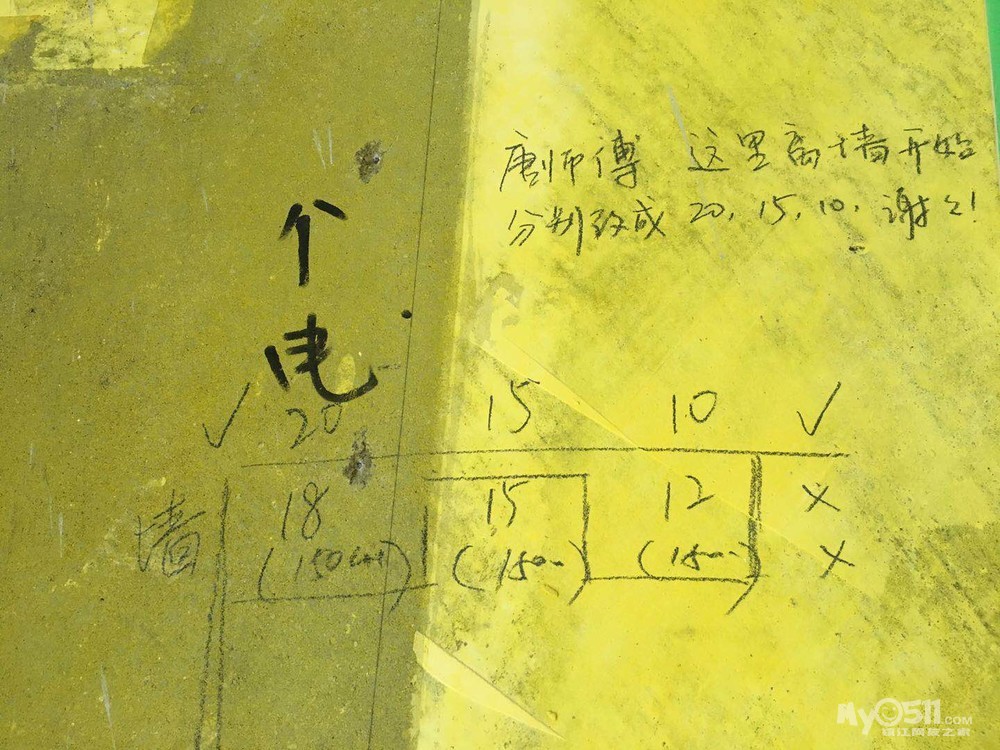 唐师傅 这里离墙开始
分别改成 20, 15, 10, 谢々!
个
电
✓ 20 15 10 ✓
墙 18 15 12 ×
(150cm) (150m) (150m) ×
My0511.COM
镇江网友之家